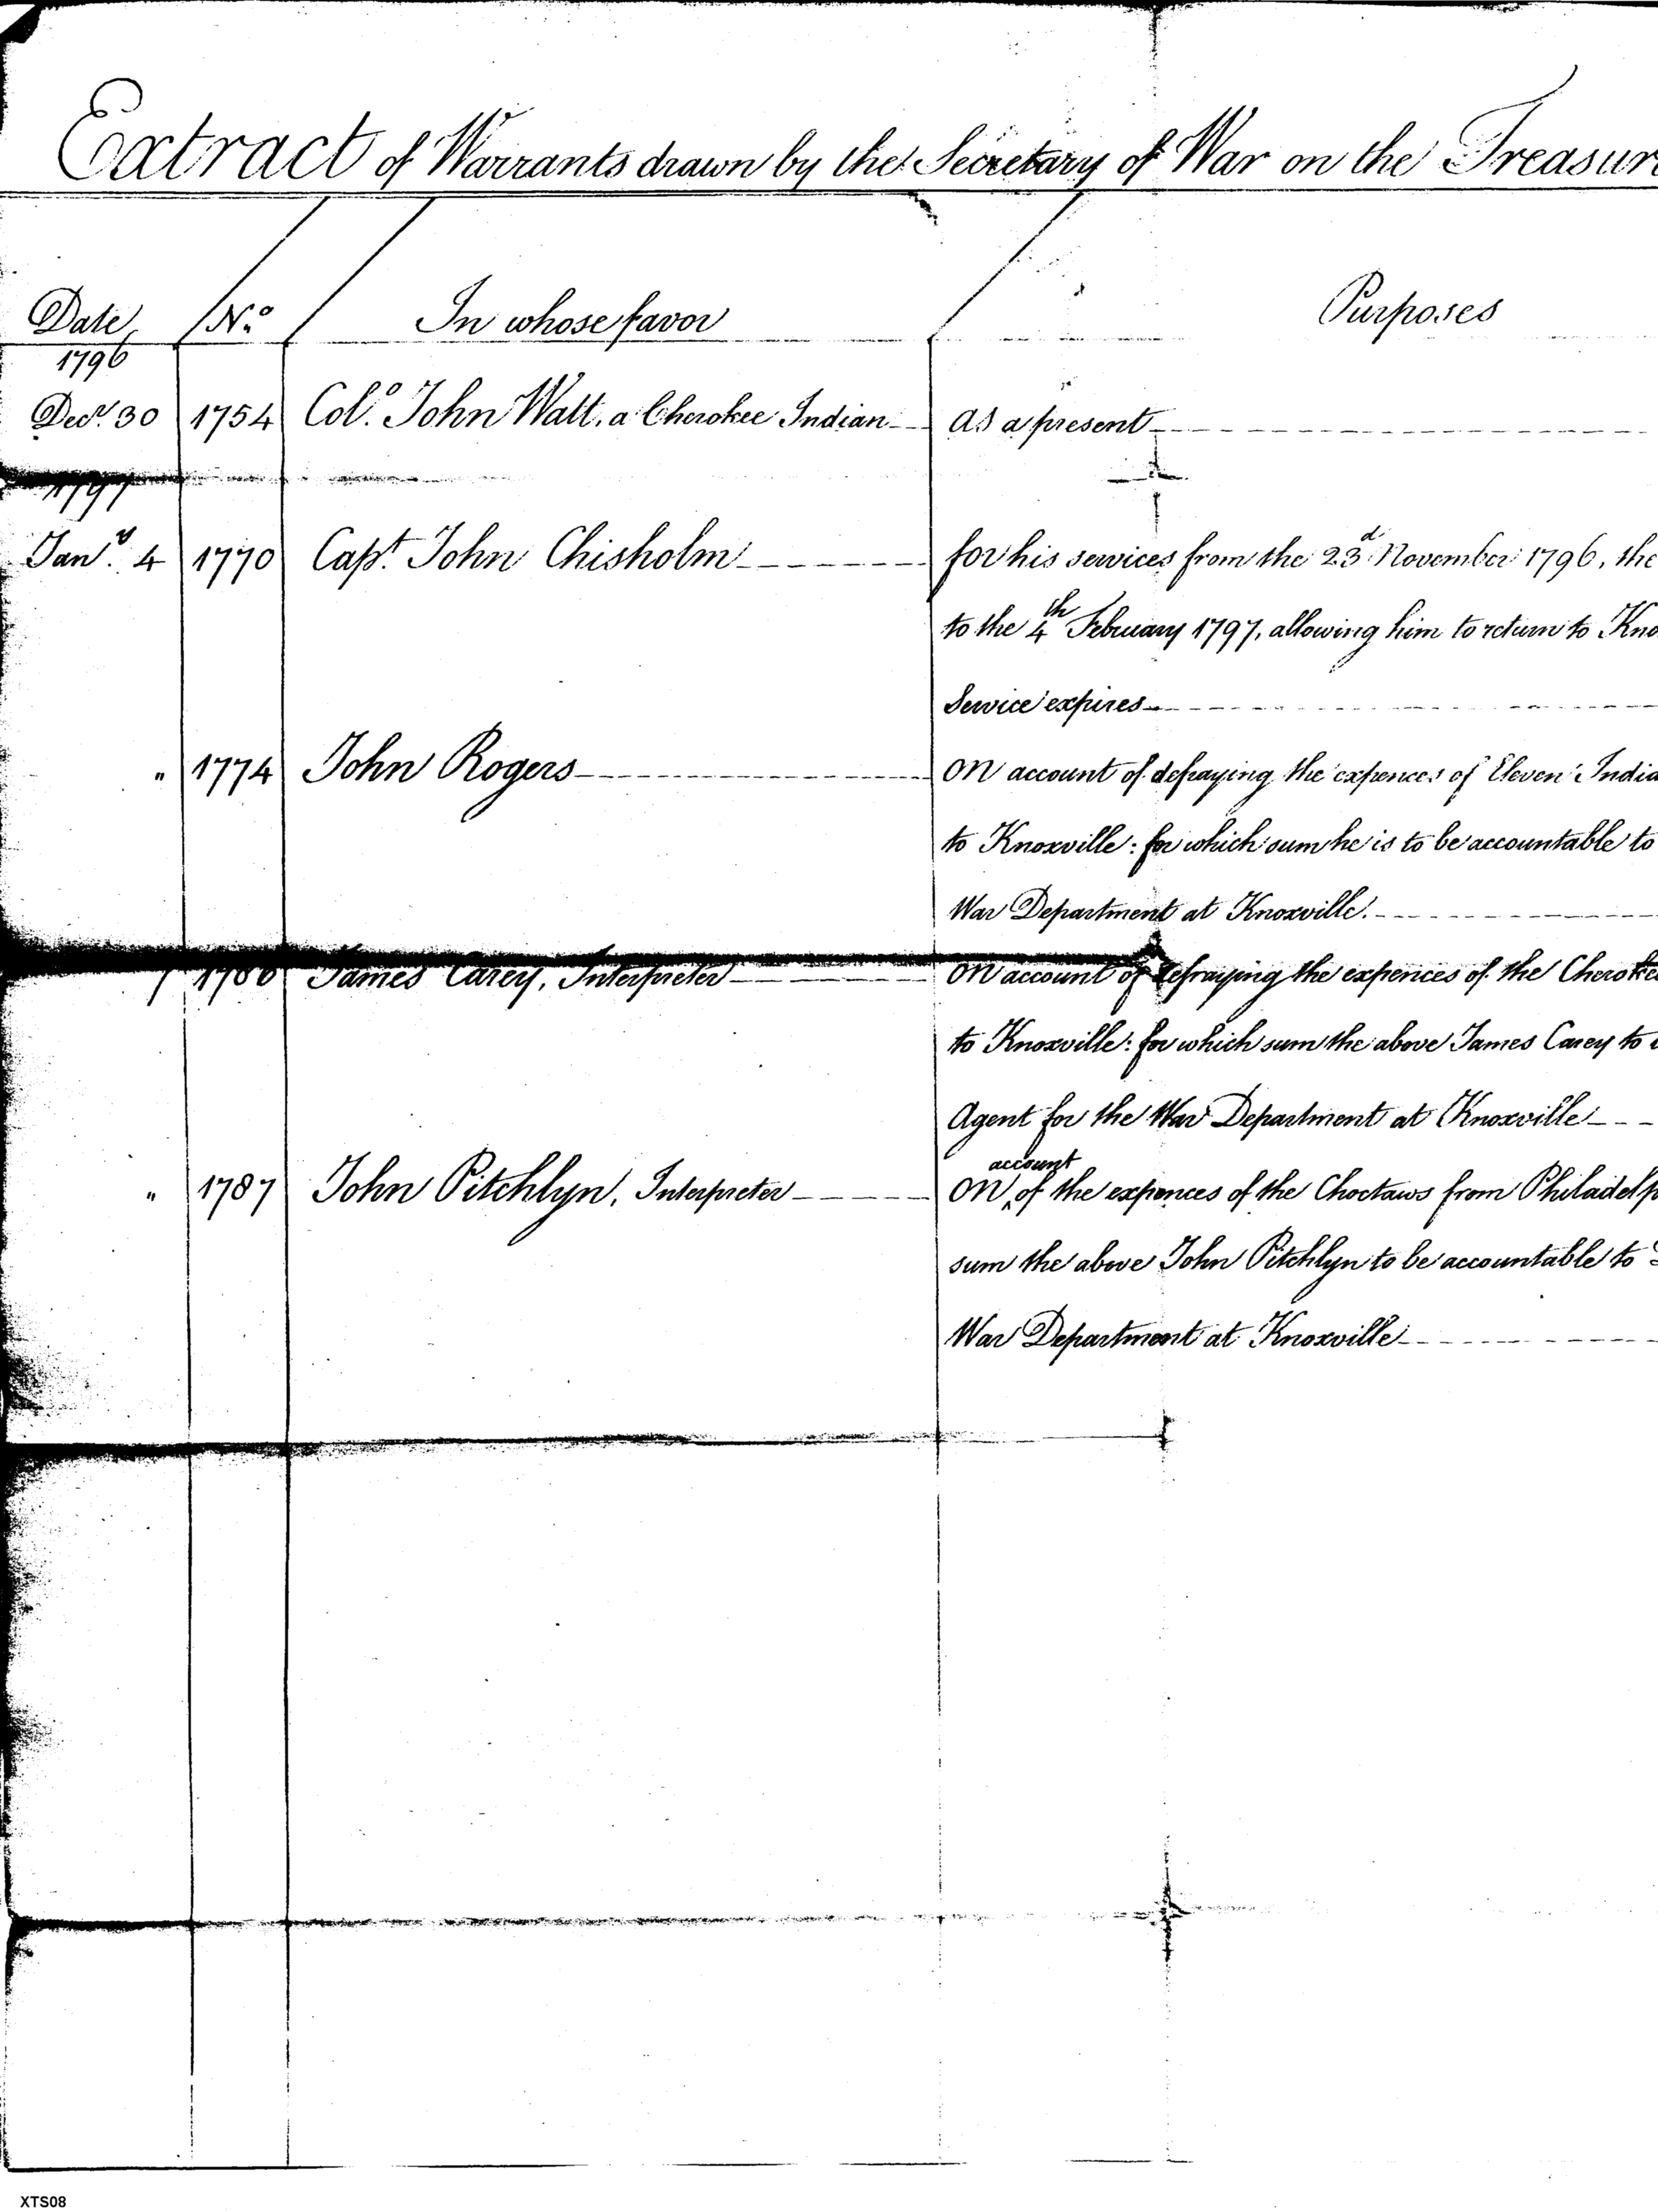 Extract of Warrants drawn by the Secretary of War on the Treasur
Date No. In whose favor Purposes
1796
Decr. 30 1754 Colo. John Watt, a Cherokee Indian as a present
1797
Jany. 4 1770 Capt. John Chisholm for his services from the 23d November 1796, the
to the 4th February 1797, allowing him to return to Kno
Service expires
" 1774 John Rogers on account of defraying the expences of Eleven India
to Knoxville: for which sum he is to be accountable to
War Department at Knoxville.
7 1786 James Carey, Interpreter on account of defraying the expences of the Cheroke
to Knoxville: for which sum the above James Carey to
Agent for the War Department at Knoxville
account
" 1787 John Pitchlyn, Interpreter on of the expences of the Choctaws from Philadelp
sum the above John Pitchlyn to be accountable to
War Department at Knoxville
XTS08